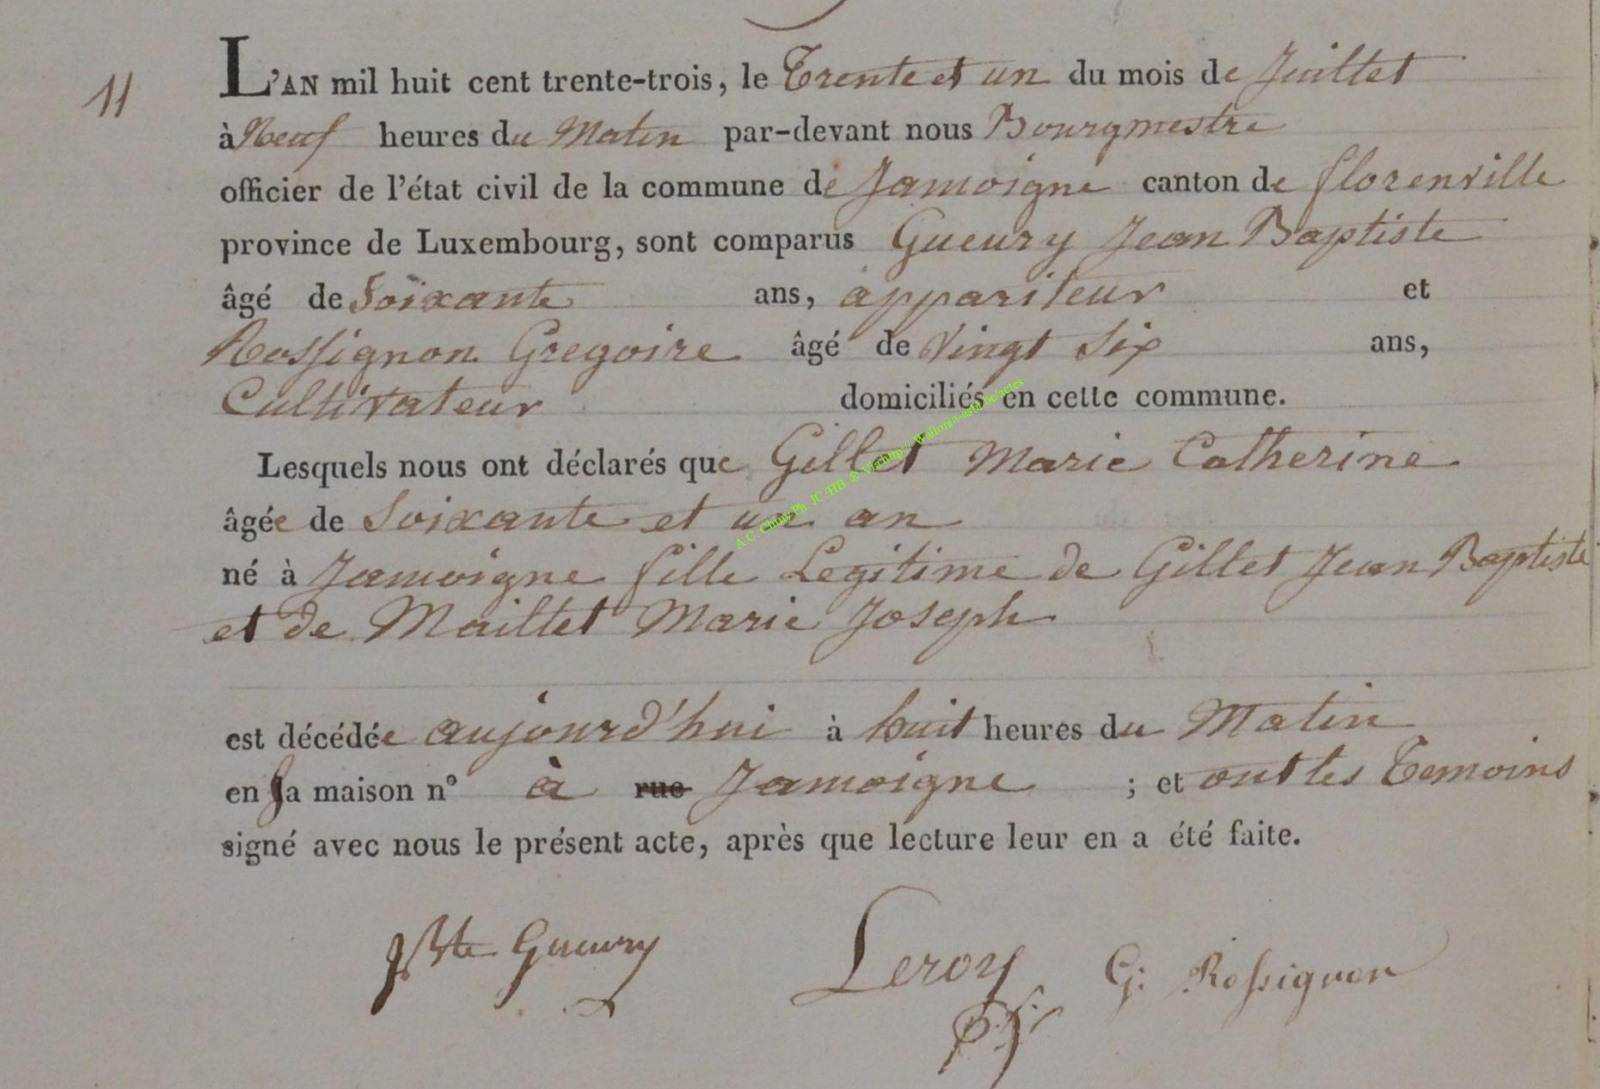 11
L'AN mil huit cent trente-trois, le Trente et un du mois de Juillet
à Neuf heures du Matin par-devant nous Bourgmestre
officier de l'état civil de la commune de Jamoigne canton de florenville
province de Luxembourg, sont comparus Gueury Jean Baptiste
âgé de Soixante ans, appariteur et
Rossignon Gregoire âgé de Vingt Six ans,
Cultivateur domiciliés en cette commune.
Lesquels nous ont déclarés que Gillet Marie Catherine
âgée de Soixante et un an
né à Jamoigne fille Legitime de Gillet Jean Baptiste
et de Maillet Marie Joseph
est décédée aujourd'hui à huit heures du Matin
en sa maison n° à rue Jamoigne ; et ont les Temoins
signé avec nous le présent acte, après que lecture leur en a été faite.
JBte Gueury Leroy G: Rossignon